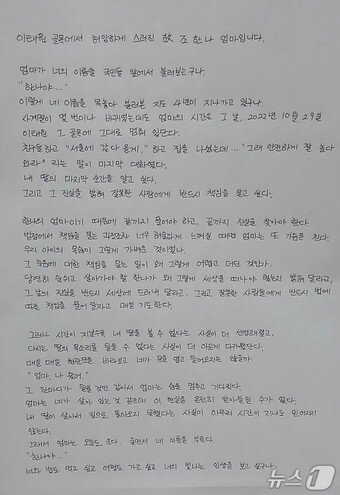 이태원 골목에서 허망하게 스러진 故 조한나 엄마입니다.
엄마가 너의 이름을 국민들 앞에서 불러보는구나.
"한나야..."
이렇게 네 이름을 목놓아 불러본 지도 4년이 지나가고 있구나
사계절이 몇 번이나 바뀌었는데도 엄마의 시간은 그 날, 2022년 10월 29일
이태원 그 골목에 그대로 멈춰 있단다.
친구들하고 "서울에 갔다 올게," 하고 집을 나섰는데... "그래 안전하게 잘 놀다
와라" 라는 말이 마지막 대화였다.
내 딸의 마지막 순간을 알고 싶다.
그리고 그 진실을 밝혀 잘못한 사람에게 반드시 책임을 묻고 싶다.
한나의 엄마이기 때문에 끝까지 물어야 하고, 끝까지 진실을 찾아야 한다.
법정에서 책임을 묻는 과정조차 너무 허술하게 느껴질 때면 엄마는 또 가슴을 친다.
우리 아이의 목숨이 그렇게 가벼운 것이었나.
그 죽음에 대한 책임을 묻는 일이 왜 그렇게 어렵고 더딘 것인가.
당연히 숨쉬고 살아가야 할 한나가 왜 그렇게 세상을 떠나야 했는지 밝혀 달라고,
그 날의 진실을 반드시 세상에 드러내 달라고, 그리고 잘못한 사람들에게 반드시 법에
따른 책임을 물어 달라고 매일 기도한다.
그러나 시간이 지날수록 내 딸을 볼 수 없다는 사실이 더 선명해졌고,
다시는 딸의 목소리를 들을 수 없다는 사실이 더 아프게 다가왔단다.
매일 매일 현관문을 바라보고 네가 문을 열고 들어오지는 않을까.
"엄마, 나 왔어."
그 한마디가 들릴 것만 같아서 엄마는 숨을 멈추고 기다린다.
엄마는 네가 살아 있는 것 같은데 이 현실을 온전히 받아들일 수가 없다.
내 딸이 살아서 집으로 돌아오지 못했다는 사실이 아무리 시간이 지나도 믿어지지
않는다.
그래서 엄마는 오늘도 운다. 울면서 네 이름을 부른다.
"한나야..."
너와 밥도 먹고 싶고 여행도 가고 싶고 너의 빛나는 인생을 보고 싶구나.
뉴스1